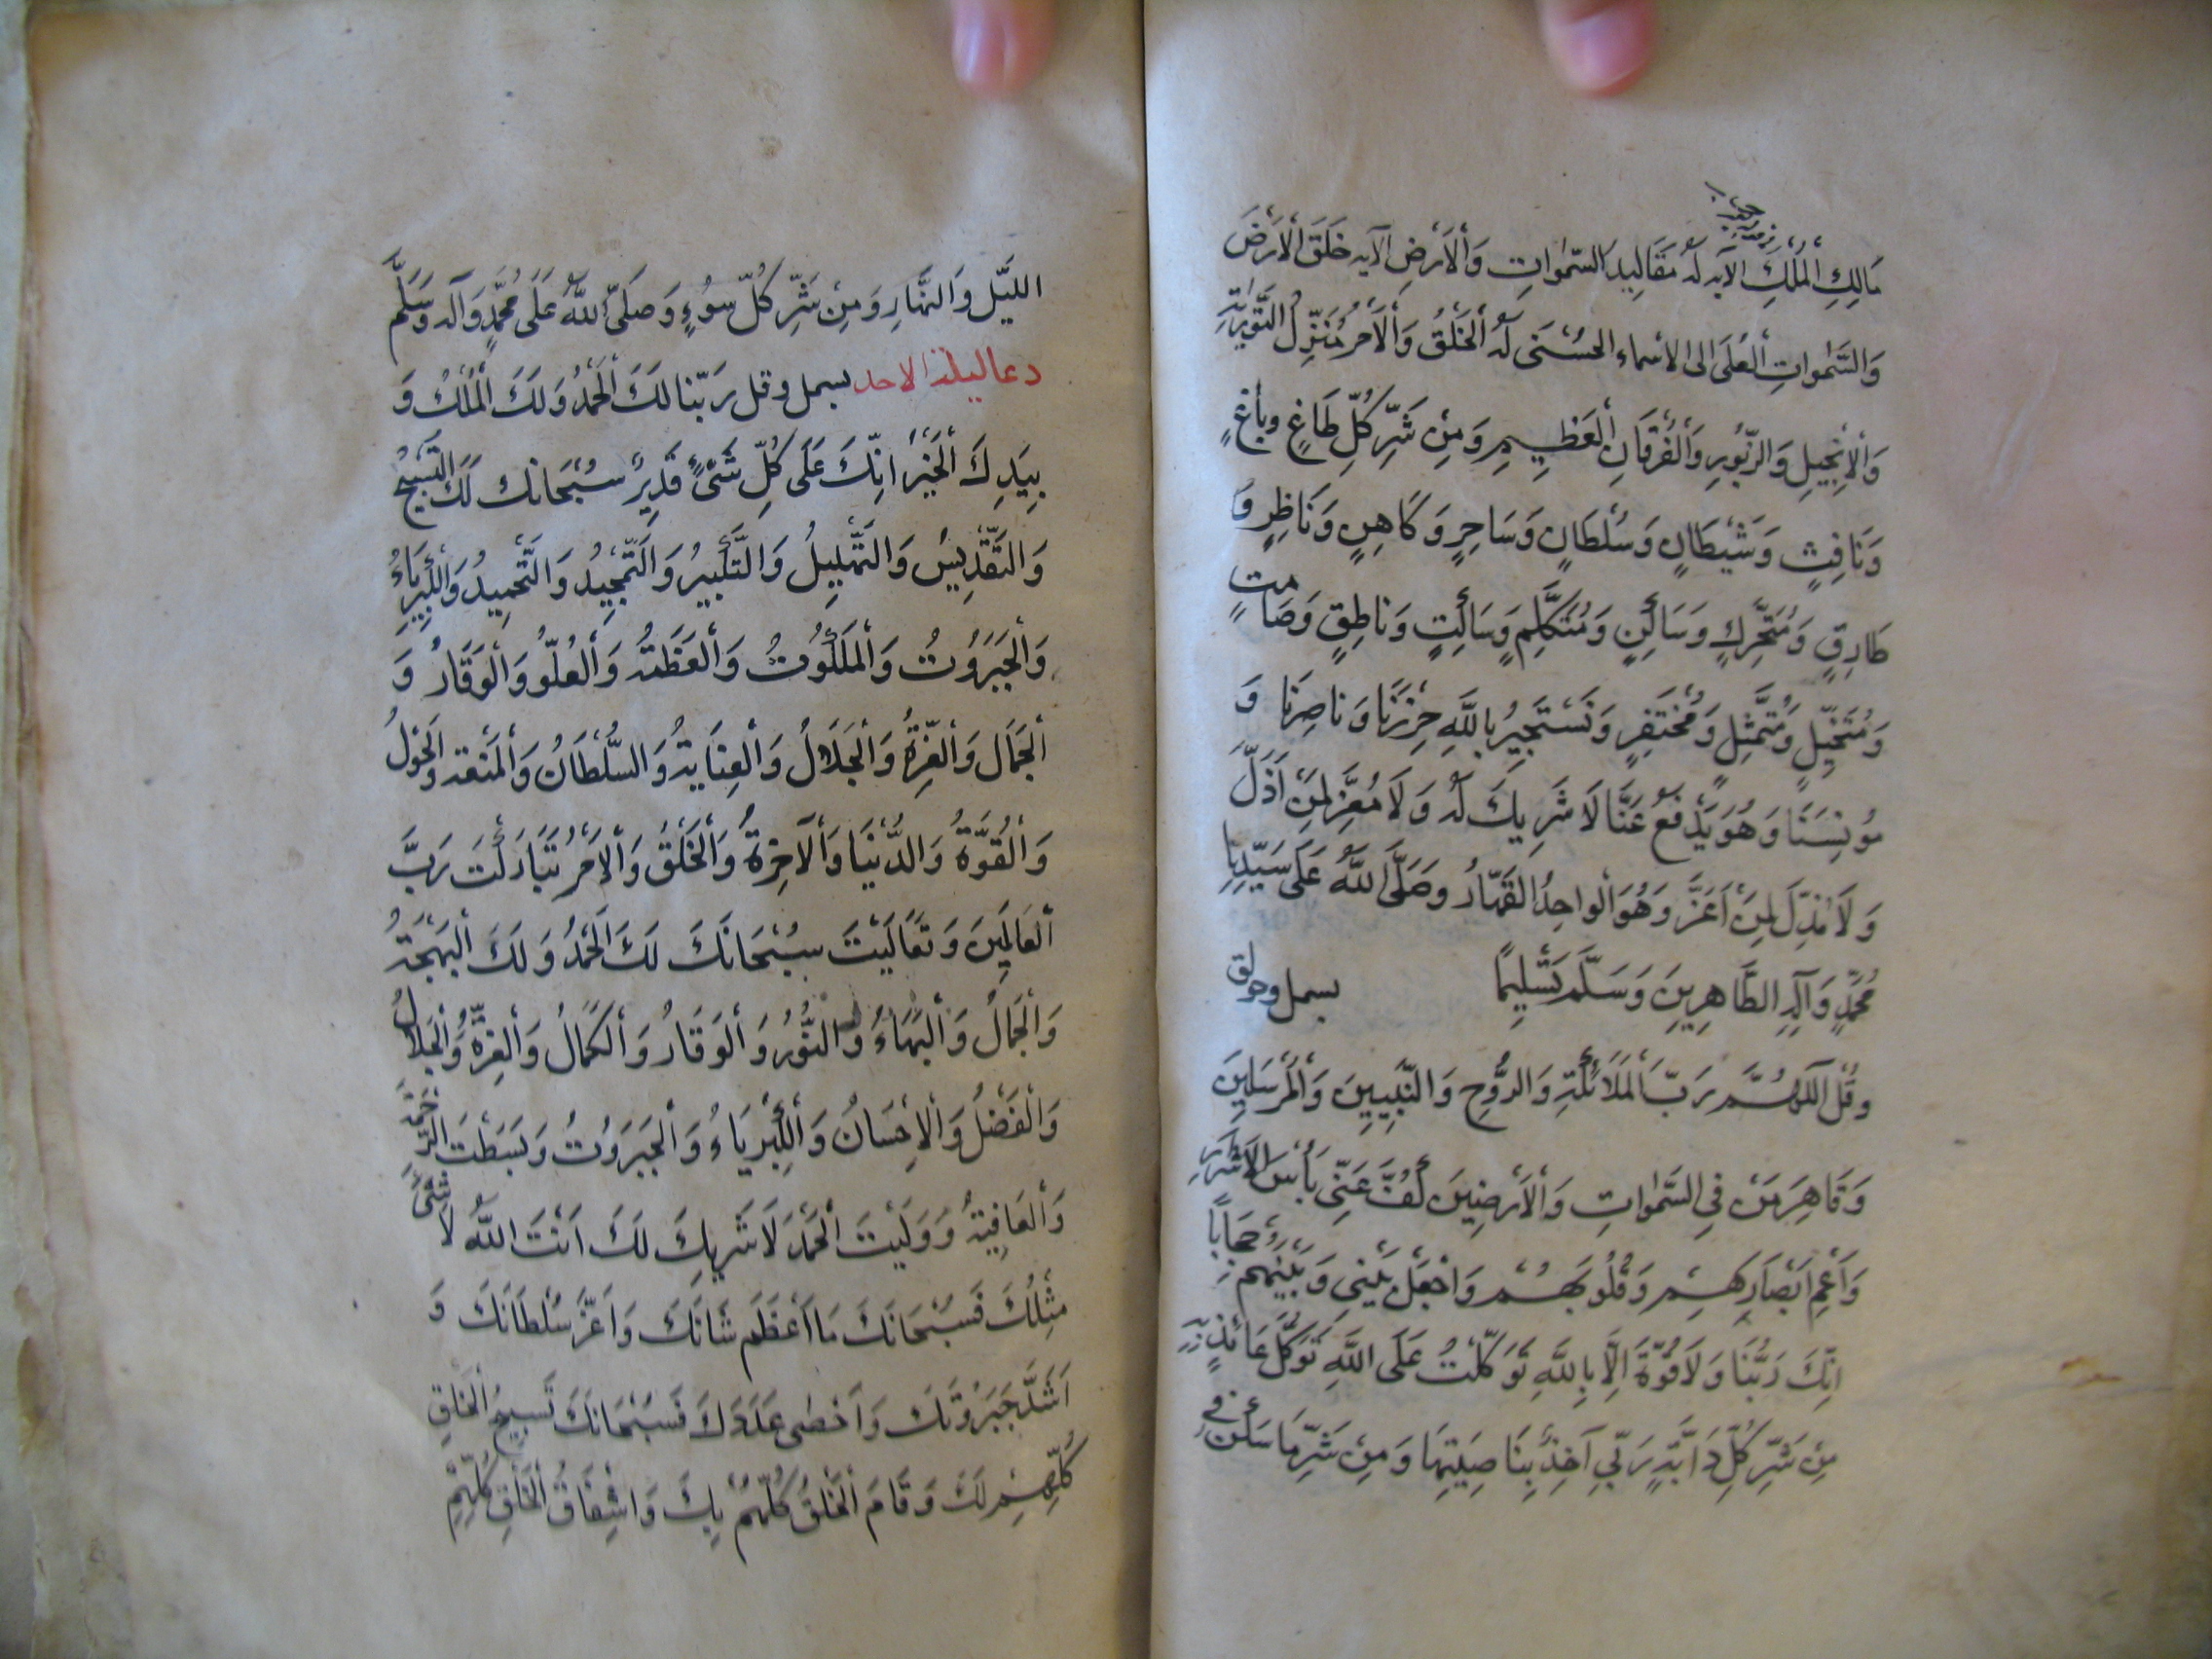 مَالِكِ الْمُلْكِ الآيه لَهُ مَقَالِيدُ السَّمٰوَاتِ وَالْاَرْضِ الآيه خَلَقَ الْاَرْضَ
وَالسَّمٰوَاتِ الْعُلَى الى الاسماء الحُسْنَى لَهُ الْخَلْقُ وَالْاَمْرُ مُنَزِّلُ التَّوْرٰيةِ
وَالْاِنْجِيلِ وَالزَّبُورِ وَالْفُرْقَانِ الْعَظِيمِ وَمِنْ شَرِّ كُلِّ طَاغٍ وباغٍ
وَنَافِثٍ وَشَيْطَانٍ وَسُلْطَانٍ وَسَاحِرٍ وَكَاهِنٍ وَنَاظِرٍ وَ
طَارِقٍ وَمُتَحَرِّكٍ وَسَاكِنٍ وَمُتَكَلِّمٍ وَسَاكِتٍ وَنَاطِقٍ وَصَامتٍ
وَمُتَخَيِّلٍ وَمُتَمَثِّلٍ وَمُخْتَفِرٍ وَنَسْتَجِيرُ بِاللَّهِ حِرْزَنَا وَنَاصِرَنَا وَ
مُونِسَنَا وَهُوَ يَدْفَعُ عَنَّا لَا شَرِيكَ لَهُ وَلَا مُعِزَّ لِمَنْ اَذَلَّ
وَلَا مُذِلَّ لِمَنْ اَعَزَّ وَهُوَ الْواحِدُ الْقَهَّارُ وَصَلَّى اللَّهُ عَلَى سَيِّدِنا
مُحَمَّدٍ وَآلِهِ الطَّاهِرِينَ وَسَلَّمَ تَسْلِيمًا بسمل وحولق
وَقُلْ اَللَّهُمَّ رَبَّ الْمَلَائِكَةِ وَالرُّوحِ وَالنَّبِيِينَ وَالْمُرْسَلِينَ
وَقَاهِرَ مَنْ فِي السَّمٰوَاتِ وَالْاَرَضِينَ كُفَّ عَنِّى بَأْسَ الْاَشْرَارِ
وَاَعْمِ اَبْصَارَهُمْ وَقُلُوبَهُمْ وَاجْعَلْ بَيْنِى وَبَيْنَهُمْ حِجَابًا
اِنَّكَ رَبُّنَا وَلَا قُوَّةَ اِلَّا بِاللَّهِ تَوَكَّلْتُ عَلَى اللَّهِ تَوَكُّلَ عَائِذٍ بِهِ
مِنْ شَرِّ كُلِّ دَابَّةٍ رَبِّي آخِذٌ بِنَاصِيَتِهَا وَمِنْ شَرِّ مَا سَكَنَ فِي
اللَّيْلِ وَالنَّهَارِ وَمِنْ شَرِّ كُلِّ سُوءٍ وَصَلَّى اللَّهُ عَلَى مُحَمَّدٍ وَآله وَسَلَّمَ
دعا ليلة الاحد بسمل وقل رَبَّنَا لَكَ الْحَمْدُ وَلَكَ الْمُلْكُ وَ
بِيَدِكَ الْخَيْرُ اِنَّكَ عَلَى كُلِّ شَىْءٍ قَدِيرٌ سُبْحَانَكَ لَكَ التَّسْبِيحُ
وَالتَّقْدِيسُ وَالتَّهْلِيلُ وَالتَّكْبِيرُ وَالتَّمْجِيدُ وَالتَّحْمِيدُ وَالْكِبْرِيَاءُ
وَالْجَبَرُوتُ وَالْمَلَكُوتُ وَالْعَظَمَةُ وَالْعُلُوُّ وَالْوَقَارُ وَ
الْجَمَالُ وَالْعِزَّةُ وَالْجَلَالُ وَالْعِنَايَةُ وَالسُّلْطَانُ وَالْمَنَعة وَالْحَوْلُ
وَالْقُوَّةُ وَالدُّنْيَا وَالْآخِرَةُ وَالْخَلْقُ وَالْاَمْرُ تَبَارَكْتَ رَبَّ
الْعَالَمِينَ وَتَعَالَيْتَ سُبْحَانَكَ لَكَ الْحَمْدُ وَلَكَ الْبَهْجَةُ
وَالْجَمَالُ وَالْبَهَاءُ وَالنُّورُ وَالْوَقَارُ وَالْكَمَالُ وَالْعِزَّةُ وَالْجَلَالُ
وَالْفَضْلُ وَالْاِحْسَانُ وَالْكِبْرِيَاءُ وَالْجَبَرُوتُ وَبَسَطْتَ الرَّحْمَةَ
وَالْعَافِيَةُ وَوَلِيْتَ الْحَمْدَ لَا شَرِيكَ لَكَ اَنْتَ اللَّهُ لَا شَىْءَ
مِثْلُكَ فَسُبْحَانَكَ مَا اَعْظَمَ شَانَكَ وَاَعَزَّ سُلْطَانَكَ وَ
اَشَدَّ جَبَرُوتَكَ وَاَحْصٰى عَدَدَكَ فَسُبْحَانَكَ تَسْبِيحُ الْخَلْقِ
كُلِّهِمْ لَكَ وَقَامَ الْخَلْقُ كُلُّهُمْ بِكَ وَاشْفَاقُ الْخَلْقِ كُلِّهِمْ